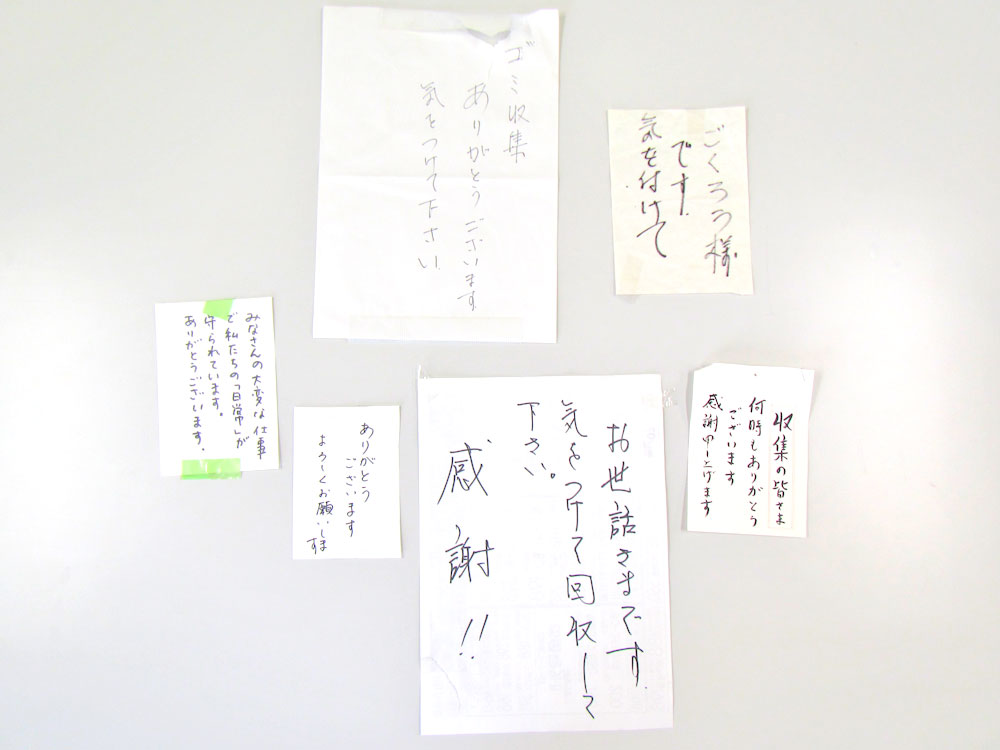 ゴミ収集
ありがとうございます
気をつけて下さい
ごくろう様
です
気を付けて
みなさんの大変な仕事
で私たちの「日常」が
守られています。
ありがとうございます。
ありがとう
ございます
よろしくお願いしま
す
お世話さまです
気をつけて回収して
下さい。
感謝!!
収集の皆さま
何時もありがとう
ございます
感謝申し上げます